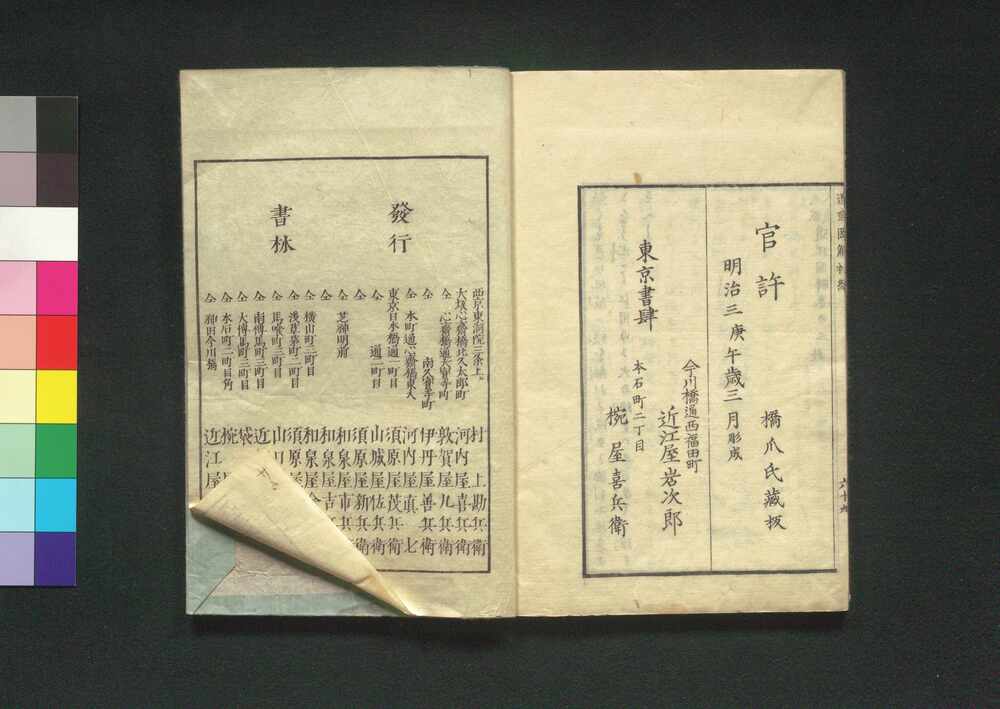 官許
橋爪氏蔵板
明治三庚午歳三月彫成
東京書肆
今川橋通西福田町
近江屋岩次郎
本石町二丁目
椀屋喜兵衛
發行
書林
西京東洞院三条上
村上勘兵衛
大坂心齋橋北久太郎町
河内屋喜兵衛
仝心齋橋通北久宝寺町
敦賀屋九兵衛
仝南久宝寺町
伊丹屋善兵衛
仝本町通心齋橋東入
河内屋真七
東京日本橋通一町目
須原屋茂兵衛
仝通二町目
山城屋佐兵衛
仝
須原屋新兵衛
仝芝神明前
和泉屋市兵衛
仝
和泉屋吉兵衛
仝横山町三町目
和泉屋金
仝浅草茅町二町目
須原屋
仝馬喰町二町目
山口
仝南傳馬町三町目
近
仝大傳馬町三町目
袋
仝本石町二町目角
椀
仝神田今川橋
近江屋